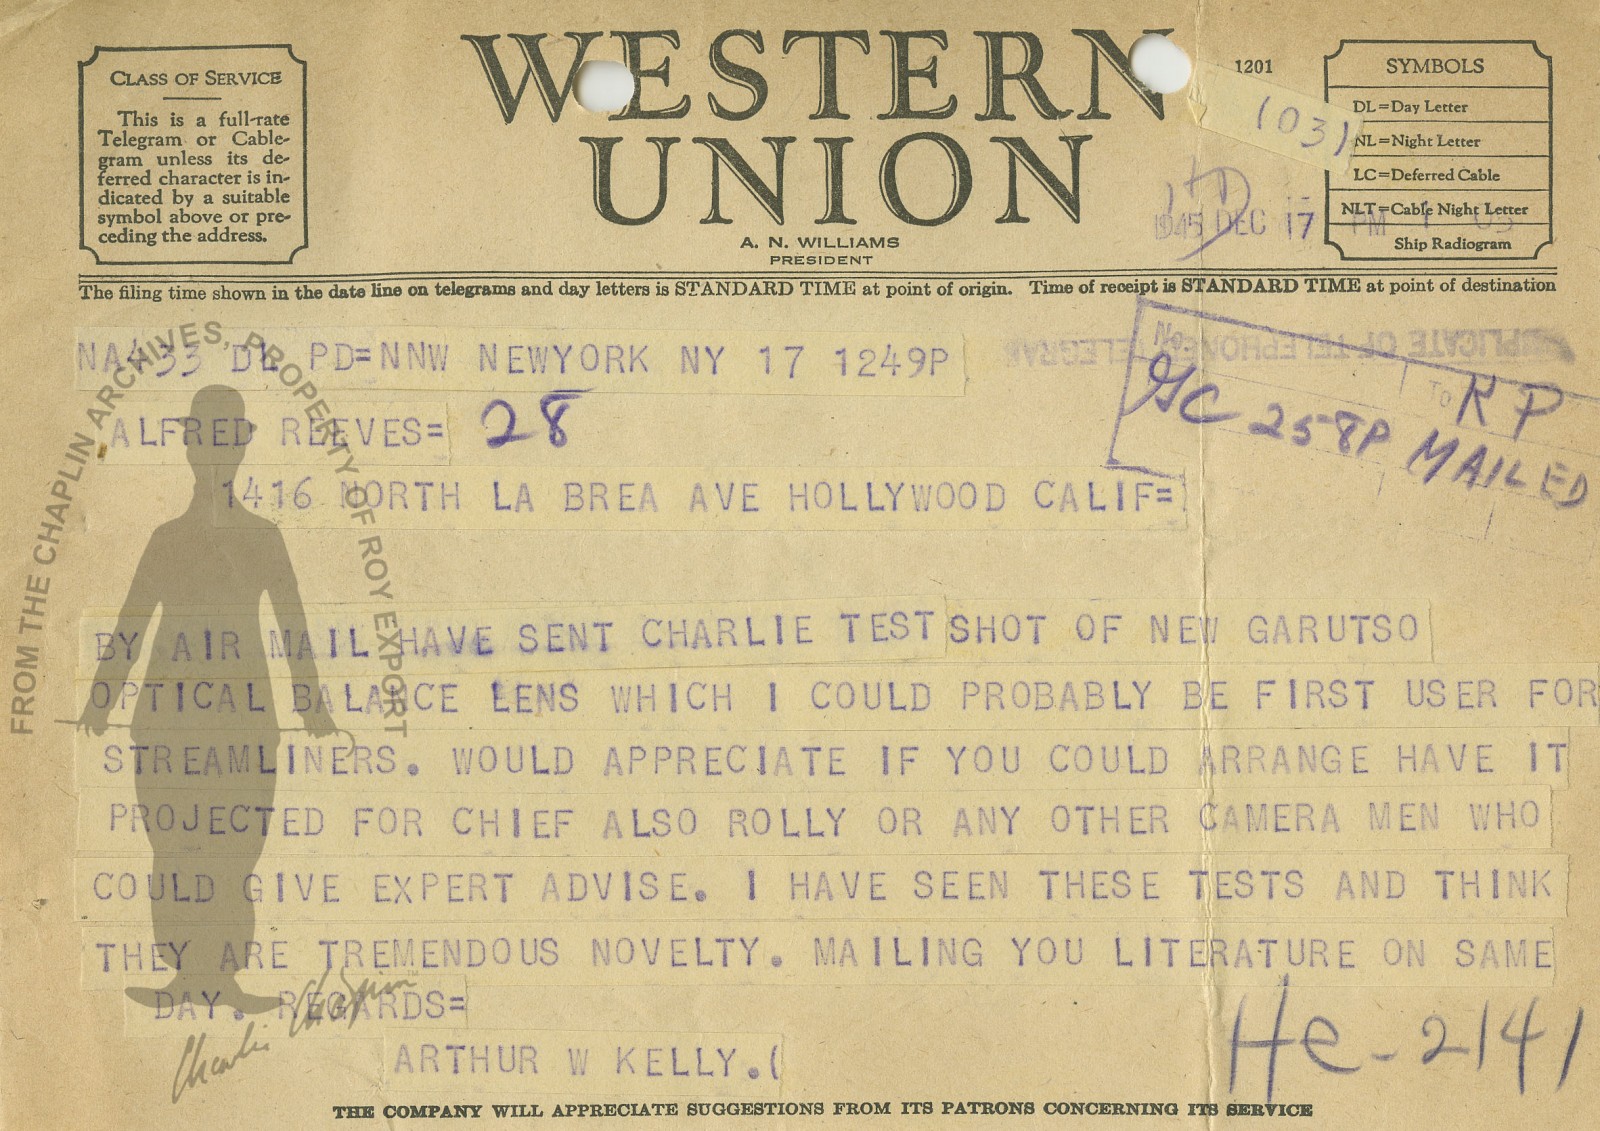 WESTERN
UNION
1201
A. N. WILLIAMS
PRESIDENT
CLASS OF SERVICE
This is a full-rate
Telegram or Cable-
gram unless its de-
ferred character is in-
dicated by a suitable
symbol above or pre-
ceding the address.
SYMBOLS
DL=Day Letter
NL=Night Letter
LC=Deferred Cable
NLT=Cable Night Letter
Ship Radiogram
(03)
1945 DEC 17 PM 1 03
The filing time shown in the date line on telegrams and day letters is STANDARD TIME at point of origin. Time of receipt is STANDARD TIME at point of destination
NA433 DL PD=NNW NEWYORK NY 17 1249P
DUPLICATE OF TELEPHONED TELEGRAM
TO KP
GC 258P MAILED
ALFRED REEVES= 28
1416 NORTH LA BREA AVE HOLLYWOOD CALIF=
BY AIR MAIL HAVE SENT CHARLIE TEST SHOT OF NEW GARUTSO
OPTICAL BALANCE LENS WHICH I COULD PROBABLY BE FIRST USER FOR
STREAMLINERS. WOULD APPRECIATE IF YOU COULD ARRANGE HAVE IT
PROJECTED FOR CHIEF ALSO ROLLY OR ANY OTHER CAMERA MEN WHO
COULD GIVE EXPERT ADVISE. I HAVE SEEN THESE TESTS AND THINK
THEY ARE TREMENDOUS NOVELTY. MAILING YOU LITERATURE ON SAME
DAY. REGARDS=
ARTHUR W KELLY.(
He-2141
THE COMPANY WILL APPRECIATE SUGGESTIONS FROM ITS PATRONS CONCERNING ITS SERVICE
FROM THE CHAPLIN ARCHIVES, PROPERTY OF ROY EXPORT
Charlie Chaplin™